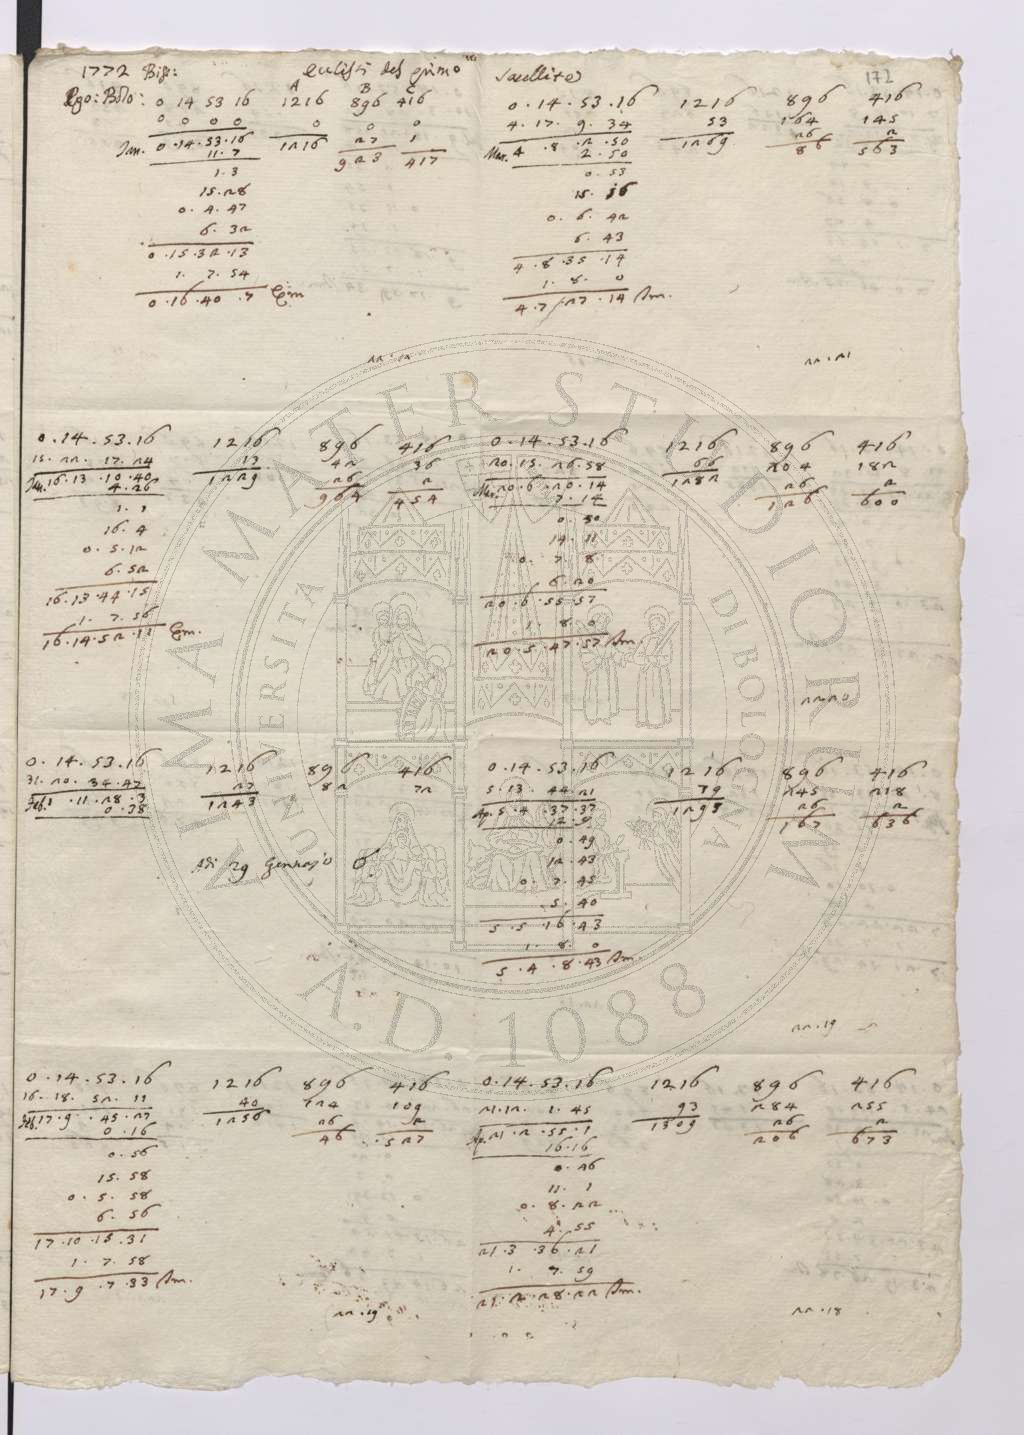 1772 Bis: Eclissi del primo Satellite 172
A B C
Ego: Bolo: 0 14 53 16 1216 896 416
0 0 0 0 0 0 0
Jan. 0.14.53.16 1216 27 1
11.7 923 417
1.3
15.28
0.4.47
6.32
0.15.32.13
1.7.54
0.16.40.7 Em.
22.22
0.14.53.16 1216 896 416
4.17.9.34 53 164 145
Mar. 4.8.2.50 1269 26 2
2.50 86 563
0.53
15.36
0.6.42
6.43
4.8.35.14
1.8.0
4.7.27.14 Im.
22.21
0.14.53.16 1216 896 416
15.22.17.24 13 42 36
Jan. 16.13.10.40 1229 26 2
4.26 964 454
1.1
16.4
0.5.12
6.52
16.13.44.15
1.7.56
16.14.52.11 Em.
0.14.53.16 1216 896 416
20.15.26.58 66 204 182
Mar. 20.6.20.14 1282 26 2
7.14 126 600
0.50
14.11
0.7.8
6.20
20.6.55.57
1.8.0
20.5.47.57 Im.
22.20
0.14.53.16 1216 896 416
31.20.34.47 27 82 72
Feb. 1.11.28.3 1243
0.38
Adi 29 Gennajo
0.14.53.16 1216 896 416
5.13.44.21 79 245 218
Ap. 5.4.37.37 1295 26 2
12.9 167 636
0.49
12.43
0.7.45
5.40
5.5.16.43
1.8.0
5.4.8.43 Im.
22.19
0.14.53.16 1216 896 416
16.18.52.11 40 124 109
Feb. 17.9.45.27 1256 26 2
0.16 46 527
0.56
15.58
0.5.58
6.56
17.10.15.31
1.7.58
17.9.7.33 Im.
22.19
0.14.53.16 1216 896 416
21.12.1.45 93 284 255
Ap. 21.2.55.1 1309 26 2
16.16 206 673
0.46
11.1
0.8.22
4.55
21.3.36.21
1.7.59
21.2.28.22 Im.
22.18
ALMA MATER STUDIORUM
UNIVERSITÀ DI BOLOGNA
A.D. 1088